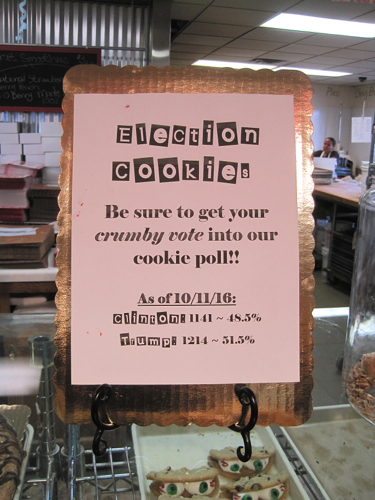 Election
Cookies
Be sure to get your
crumby vote into our
cookie poll!!
As of 10/11/16:
Clinton: 1141 ~ 48.5%
Trump: 1214 ~ 51.5%